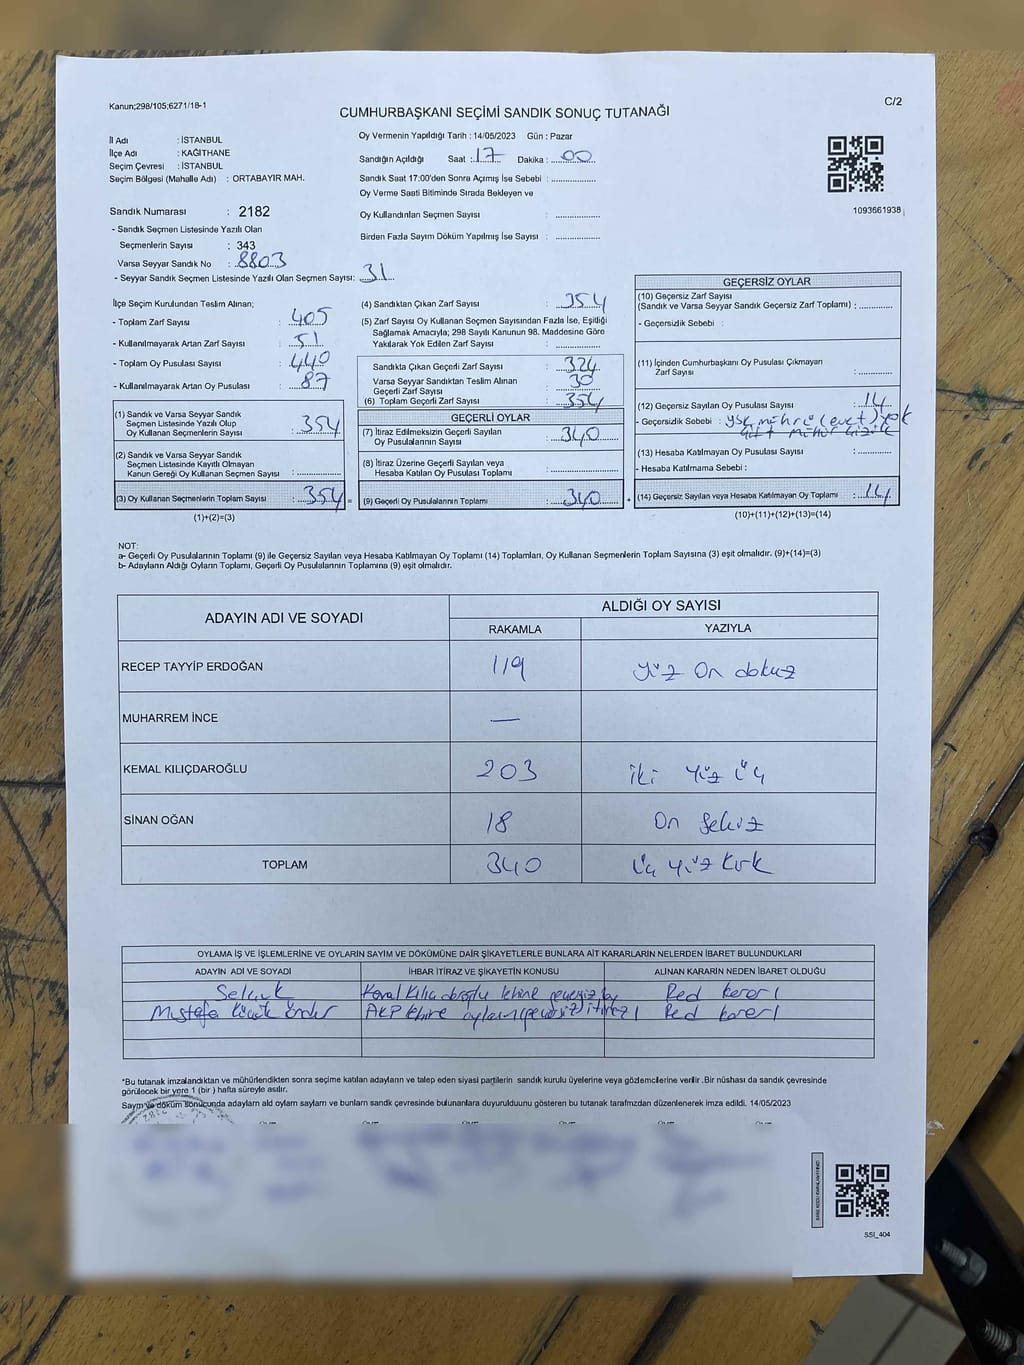 Kanun;298/105;6271/18-1
C/2
CUMHURBAŞKANI SEÇİMİ SANDIK SONUÇ TUTANAĞI
İl Adı : İSTANBUL
İlçe Adı : KAĞITHANE
Seçim Çevresi : İSTANBUL
Seçim Bölgesi (Mahalle Adı) : ORTABAYIR MAH.
Sandık Numarası : 2182
- Sandık Seçmen Listesinde Yazılı Olan
Seçmenlerin Sayısı : 343
Varsa Seyyar Sandık No : 8803
- Seyyar Sandık Seçmen Listesinde Yazılı Olan Seçmen Sayısı: 31
Oy Vermenin Yapıldığı Tarih : 14/05/2023 Gün : Pazar
Sandığın Açıldığı Saat : 17 Dakika : 00
Sandık Saat 17:00'den Sonra Açımış İse Sebebi :
Oy Verme Saati Bitiminde Sırada Bekleyen ve
Oy Kullandırılan Seçmen Sayısı :
Birden Fazla Sayım Döküm Yapılmış İse Sayısı :
1093661938
İlçe Seçim Kurulundan Teslim Alınan;
- Toplam Zarf Sayısı : 405
- Kullanılmayarak Artan Zarf Sayısı : 51
- Toplam Oy Pusulası Sayısı : 440
- Kullanılmayarak Artan Oy Pusulası : 87
(1) Sandık ve Varsa Seyyar Sandık
Seçmen Listesinde Yazılı Olup
Oy Kullanan Seçmenlerin Sayısı : 354
(2) Sandık ve Varsa Seyyar Sandık
Seçmen Listesinde Kayıtlı Olmayan
Kanun Gereği Oy Kullanan Seçmen Sayısı :
(3) Oy Kullanan Seçmenlerin Toplam Sayısı : 354 =
(1)+(2)=(3)
(4) Sandıktan Çıkan Zarf Sayısı : 354
(5) Zarf Sayısı Oy Kullanan Seçmen Sayısından Fazla İse, Eşitliği
Sağlamak Amacıyla; 298 Sayılı Kanunun 98. Maddesine Göre
Yakılarak Yok Edilen Zarf Sayısı :
Sandıkta Çıkan Geçerli Zarf Sayısı : 324
Varsa Seyyar Sandıktan Teslim Alınan
Geçerli Zarf Sayısı : 30
(6) Toplam Geçerli Zarf Sayısı : 354
GEÇERLİ OYLAR
(7) İtiraz Edilmeksizin Geçerli Sayılan
Oy Pusulalarının Sayısı : 340
(8) İtiraz Üzerine Geçerli Sayılan veya
Hesaba Katılan Oy Pusulası Toplamı :
(9) Geçerli Oy Pusulalarının Toplamı : 340 +
GEÇERSİZ OYLAR
(10) Geçersiz Zarf Sayısı
(Sandık ve Varsa Seyyar Sandık Geçersiz Zarf Toplamı) :
- Geçersizlik Sebebi :
(11) İçinden Cumhurbaşkanı Oy Pusulası Çıkmayan
Zarf Sayısı :
(12) Geçersiz Sayılan Oy Pusulası Sayısı : 14
- Geçersizlik Sebebi : YSK mührü (evet) yok
çift mühür
(13) Hesaba Katılmayan Oy Pusulası Sayısı :
- Hesaba Katılmama Sebebi :
(14) Geçersiz Sayılan veya Hesaba Katılmayan Oy Toplamı : 14
(10)+(11)+(12)+(13)=(14)
NOT:
a- Geçerli Oy Pusulalarının Toplamı (9) ile Geçersiz Sayılan veya Hesaba Katılmayan Oy Toplamı (14) Toplamları, Oy Kullanan Seçmenlerin Toplam Sayısına (3) eşit olmalıdır. (9)+(14)=(3)
b- Adayların Aldığı Oyların Toplamı, Geçerli Oy Pusulalarının Toplamına (9) eşit olmalıdır.
ADAYIN ADI VE SOYADI
ALDIĞI OY SAYISI
RAKAMLA YAZIYLA
RECEP TAYYİP ERDOĞAN 119 yüz On dokuz
MUHARREM İNCE —
KEMAL KILIÇDAROĞLU 203 iki yüz üç
SİNAN OĞAN 18 On sekiz
TOPLAM 340 üç yüz kırk
OYLAMA İŞ VE İŞLEMLERİNE VE OYLARIN SAYIM VE DÖKÜMÜNE DAİR ŞİKAYETLERLE BUNLARA AİT KARARLARIN NELERDEN İBARET BULUNDUKLARI
ADAYIN ADI VE SOYADI İHBAR İTİRAZ VE ŞİKAYETİN KONUSU ALINAN KARARIN NEDEN İBARET OLDUĞU
Selçuk Kılıçdaroğlu lehine geçersiz oy Red kararı
Mustafa Küçük önder AKP lehine oyların (geçersiz) itirazı Red kararı
*Bu tutanak imzalandıktan ve mühürlendikten sonra seçime katılan adayların ve talep eden siyasi partilerin sandık kurulu üyelerine veya gözlemcilerine verilir .Bir nüshası da sandık çevresinde
görülecek bir yere 1 (bir ) hafta süreyle asılır.
Sayım ve döküm sonucunda adayların ald oyların sayları ve bunların sandk çevresinde bulunanlara duyurulduunu gösteren bu tutanak tarafmzdan düzenlenerek imza edildi. 14/05/2023
SSI_404